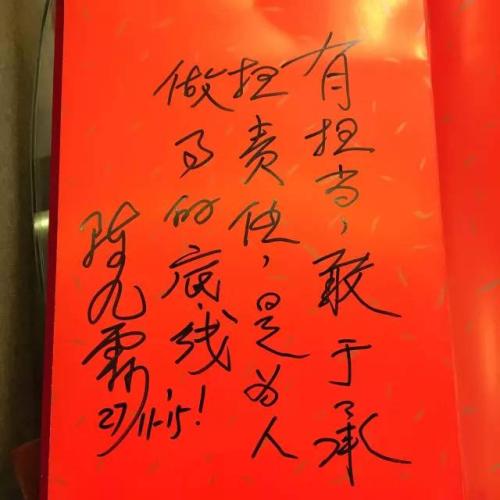 有担当，敢于承
担责任，是为人
做事的底线！
陈九霖
27/11-15